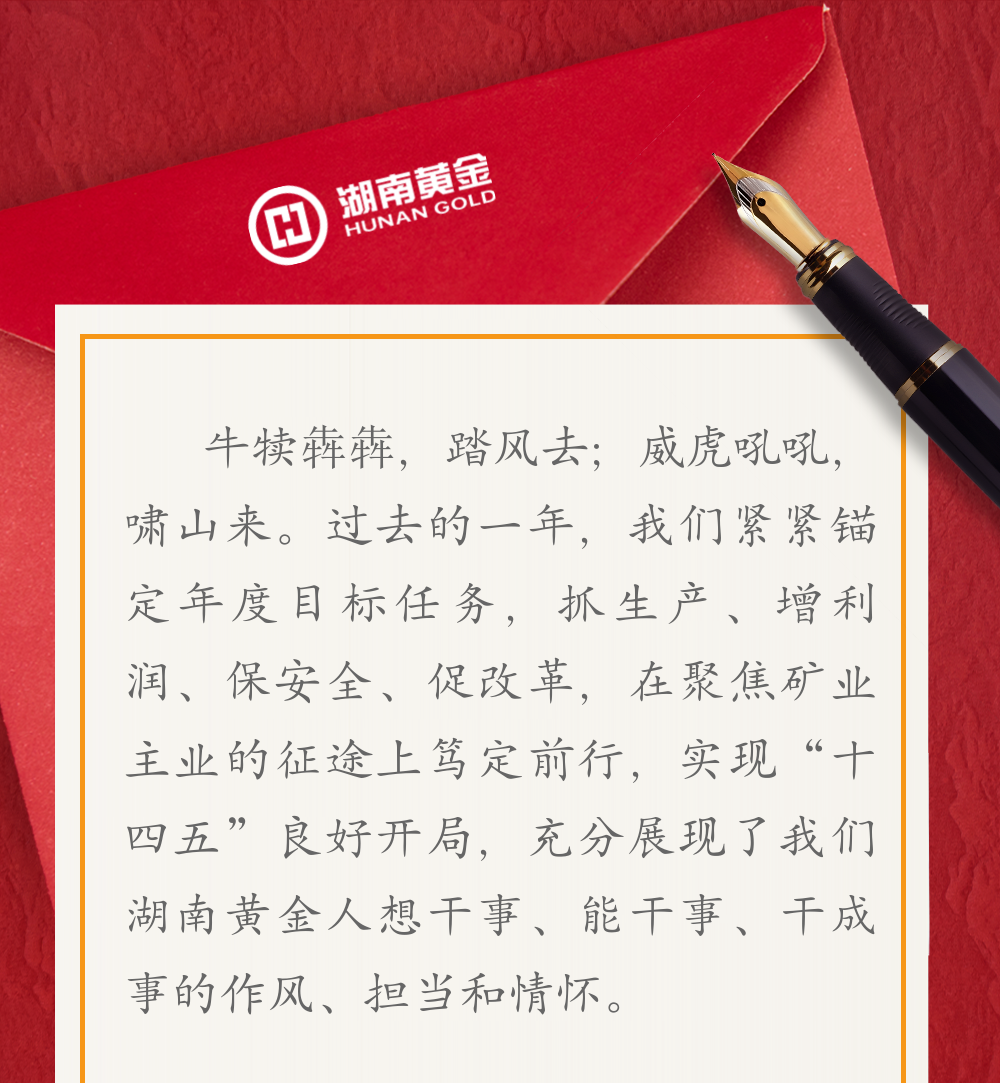 湖南黄金
HUNAN GOLD
牛犊犇犇，踏风去；威虎吼吼，
啸山来。过去的一年，我们紧紧锚
定年度目标任务，抓生产、增利
润、保安全、促改革，在聚焦矿业
主业的征途上笃定前行，实现“十
四五”良好开局，充分展现了我们
湖南黄金人想干事、能干事、干成
事的作风、担当和情怀。